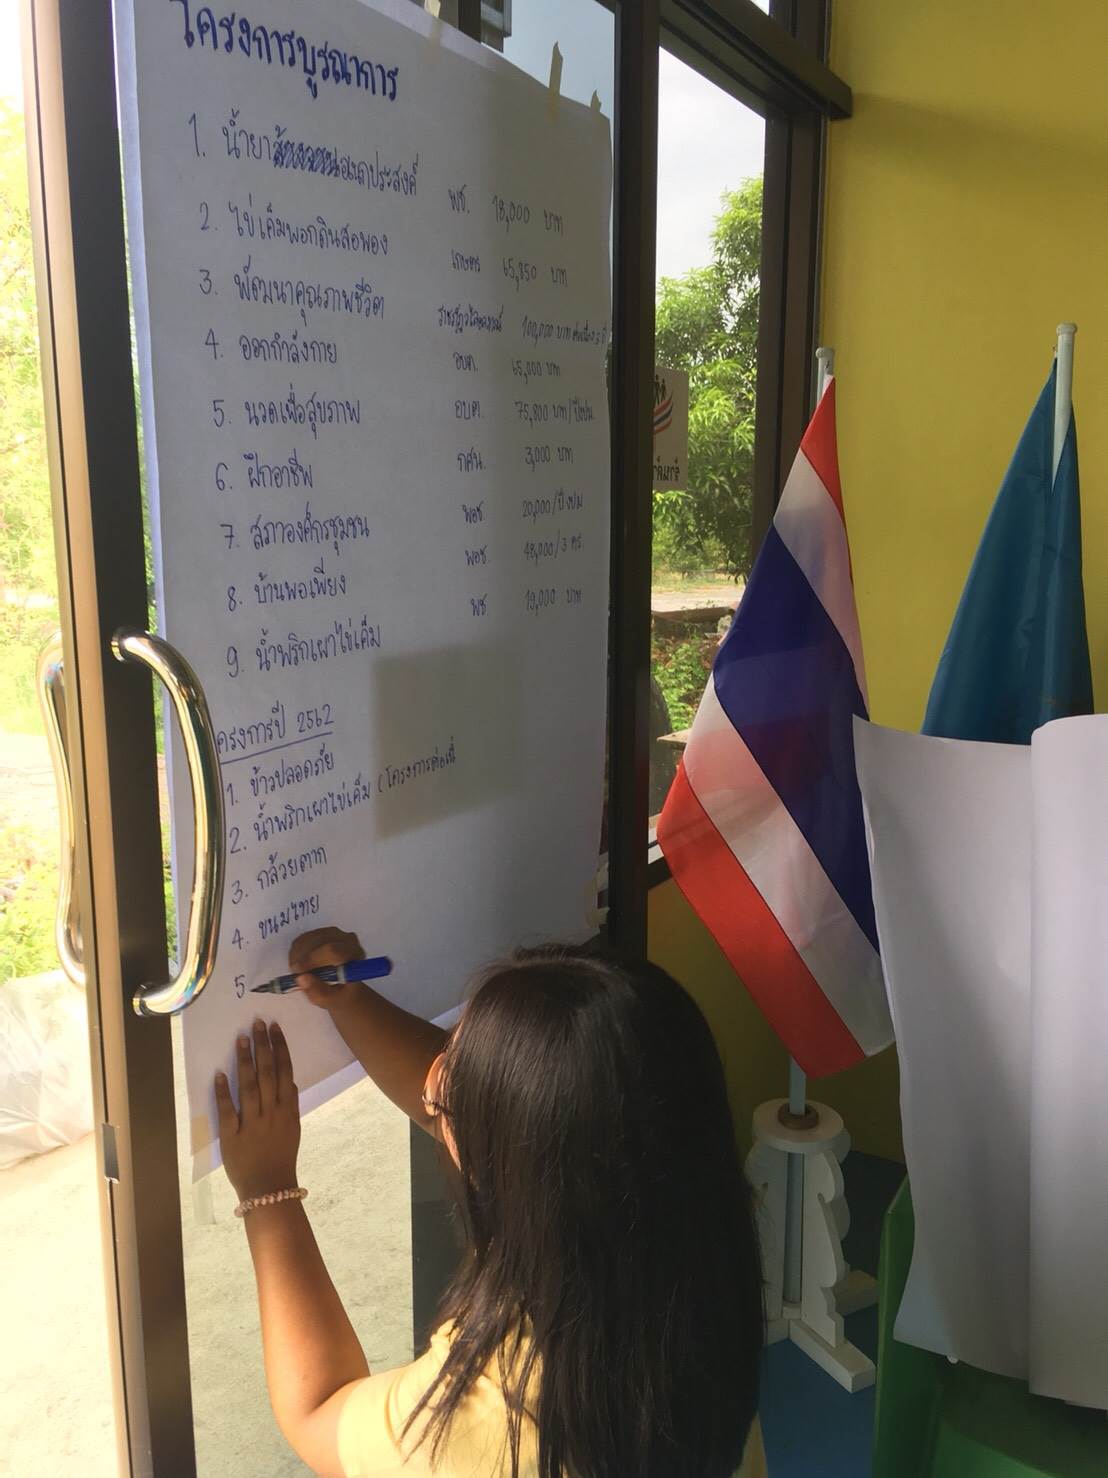 โครงการบูรณาการ
1. น้ำยาอเนกประสงค์ พช. 18,000 บาท
2. ไข่เค็มพอกดินสอพอง เกษตร 65,850 บาท
3. พัฒนาคุณภาพชีวิต 100,000 บาท
4. ออกกำลังกาย อบต. 65,000 บาท
5. นวดเพื่อสุขภาพ อบต. 75,800 บาท/ปีงปม.
6. ฝึกอาชีพ กศน. 3,000 บาท
7. สภาองค์กรชุมชน พอช. 20,000/ปีงปม
8. บ้านพอเพียง พอช. 48,000/3 คร.
9. น้ำพริกเผาไข่เค็ม พช 19,000 บาท
ครงการปี 2562
1. ข้าวปลอดภัย
2. น้ำพริกเผาไข่เค็ม (โครงการต่อเนื่
3. กล้วยตาก
4. ขนมไทย
5